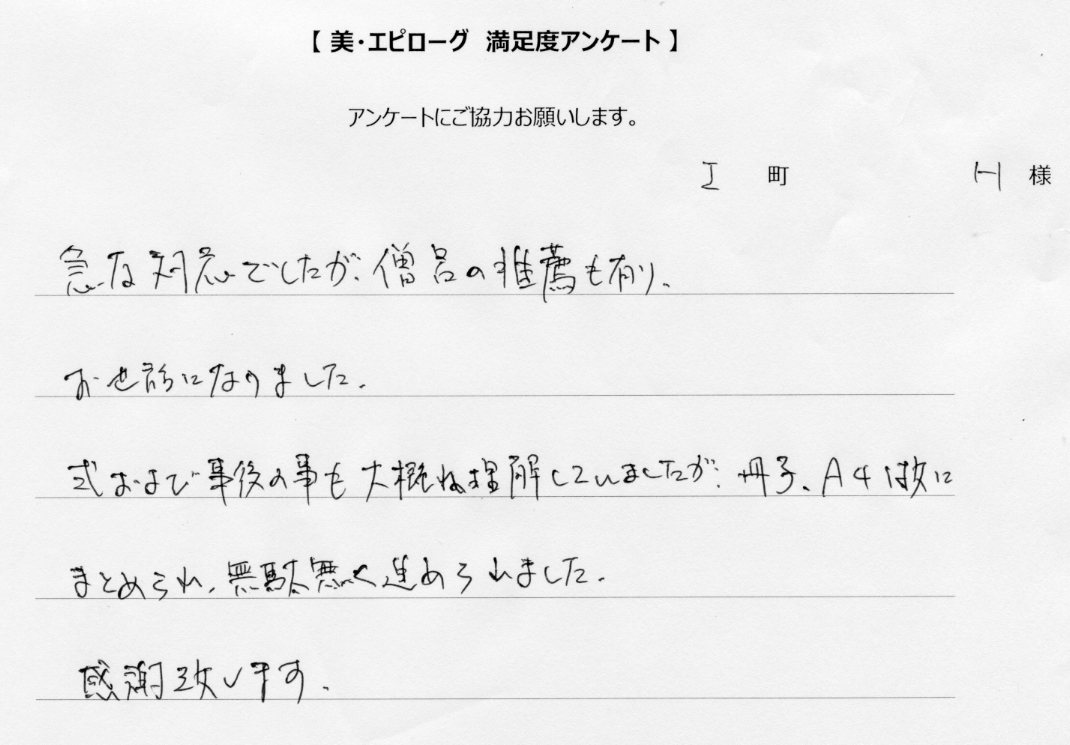 【 美・エピローグ 満足度アンケート 】
アンケートにご協力お願いします。
I 町 H 様
急な対応でしたが、僧呂の推薦も有り、
お世話になりました。
式および事後の事も大概ね理解していましたが、冊子、A4 1枚に
まとめられ、無駄無く進められました。
感謝致します。